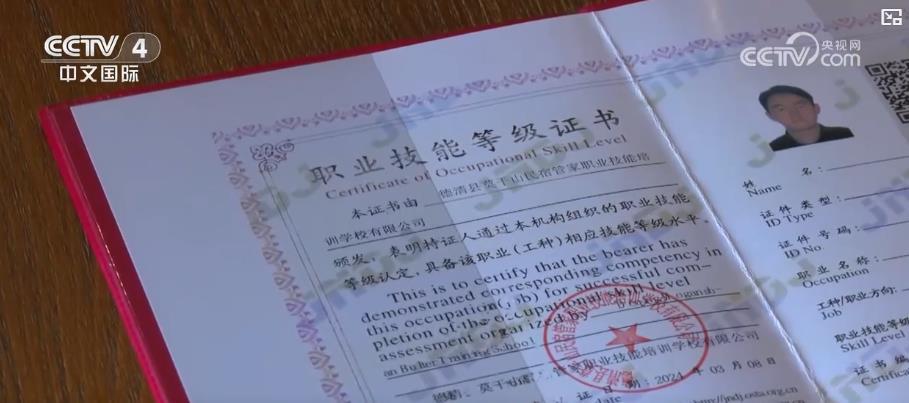 CCTV 4
中文国际
CCTV 央视网
com
职业技能等级证书
Certificate of Occupational Skill Level
本证书由 德清县莫干山民宿管家职业技能培
训学校有限公司
颁发,表明持证人通过本机构组织的职业技能
等级认定,具备该职业(工种)相应技能等级水平。
This is to certify that the bearer has
demonstrated corresponding competency in
this occupation(job) for successful com-
pletion of the occupational skill level
assessment organized by
an Butler Training School
管家职业技能培训学校有限公司
期: 2024 年 03 月 08
date
姓 名:
Name
证件类型:
ID Type
证件号码:
ID No.
职业名称:
Occupation
工种/职业方向:
Job
职业技能等级
Skill Level
证书编
Certificate